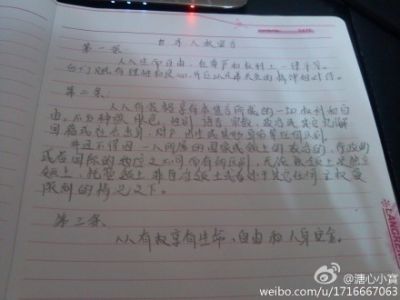 世界人权宣言
第一条
人人生而自由，在尊严和权利上一律平等。
他们赋有理性和良心，并应以兄弟关系的精神相对待。
第二条
人人有资格享有本宣言所载的一切权利和自
由，不分种族、肤色、性别、语言、宗教、政治或其它见解
国籍或社会出身、财产、出生或其他身份等任何区别。
并且不得因一人所属的国家或领土的政治的、行政的
或者国际的地位之不同而有所区别，无论该领土是独立
领土、托管领土、非自治领土或者处于其它任何主权受
限制的情况之下。
第三条
人人有权享有生命、自由和人身安全。
LANGRE
@溏心小寶
weibo.com/u/1716667063